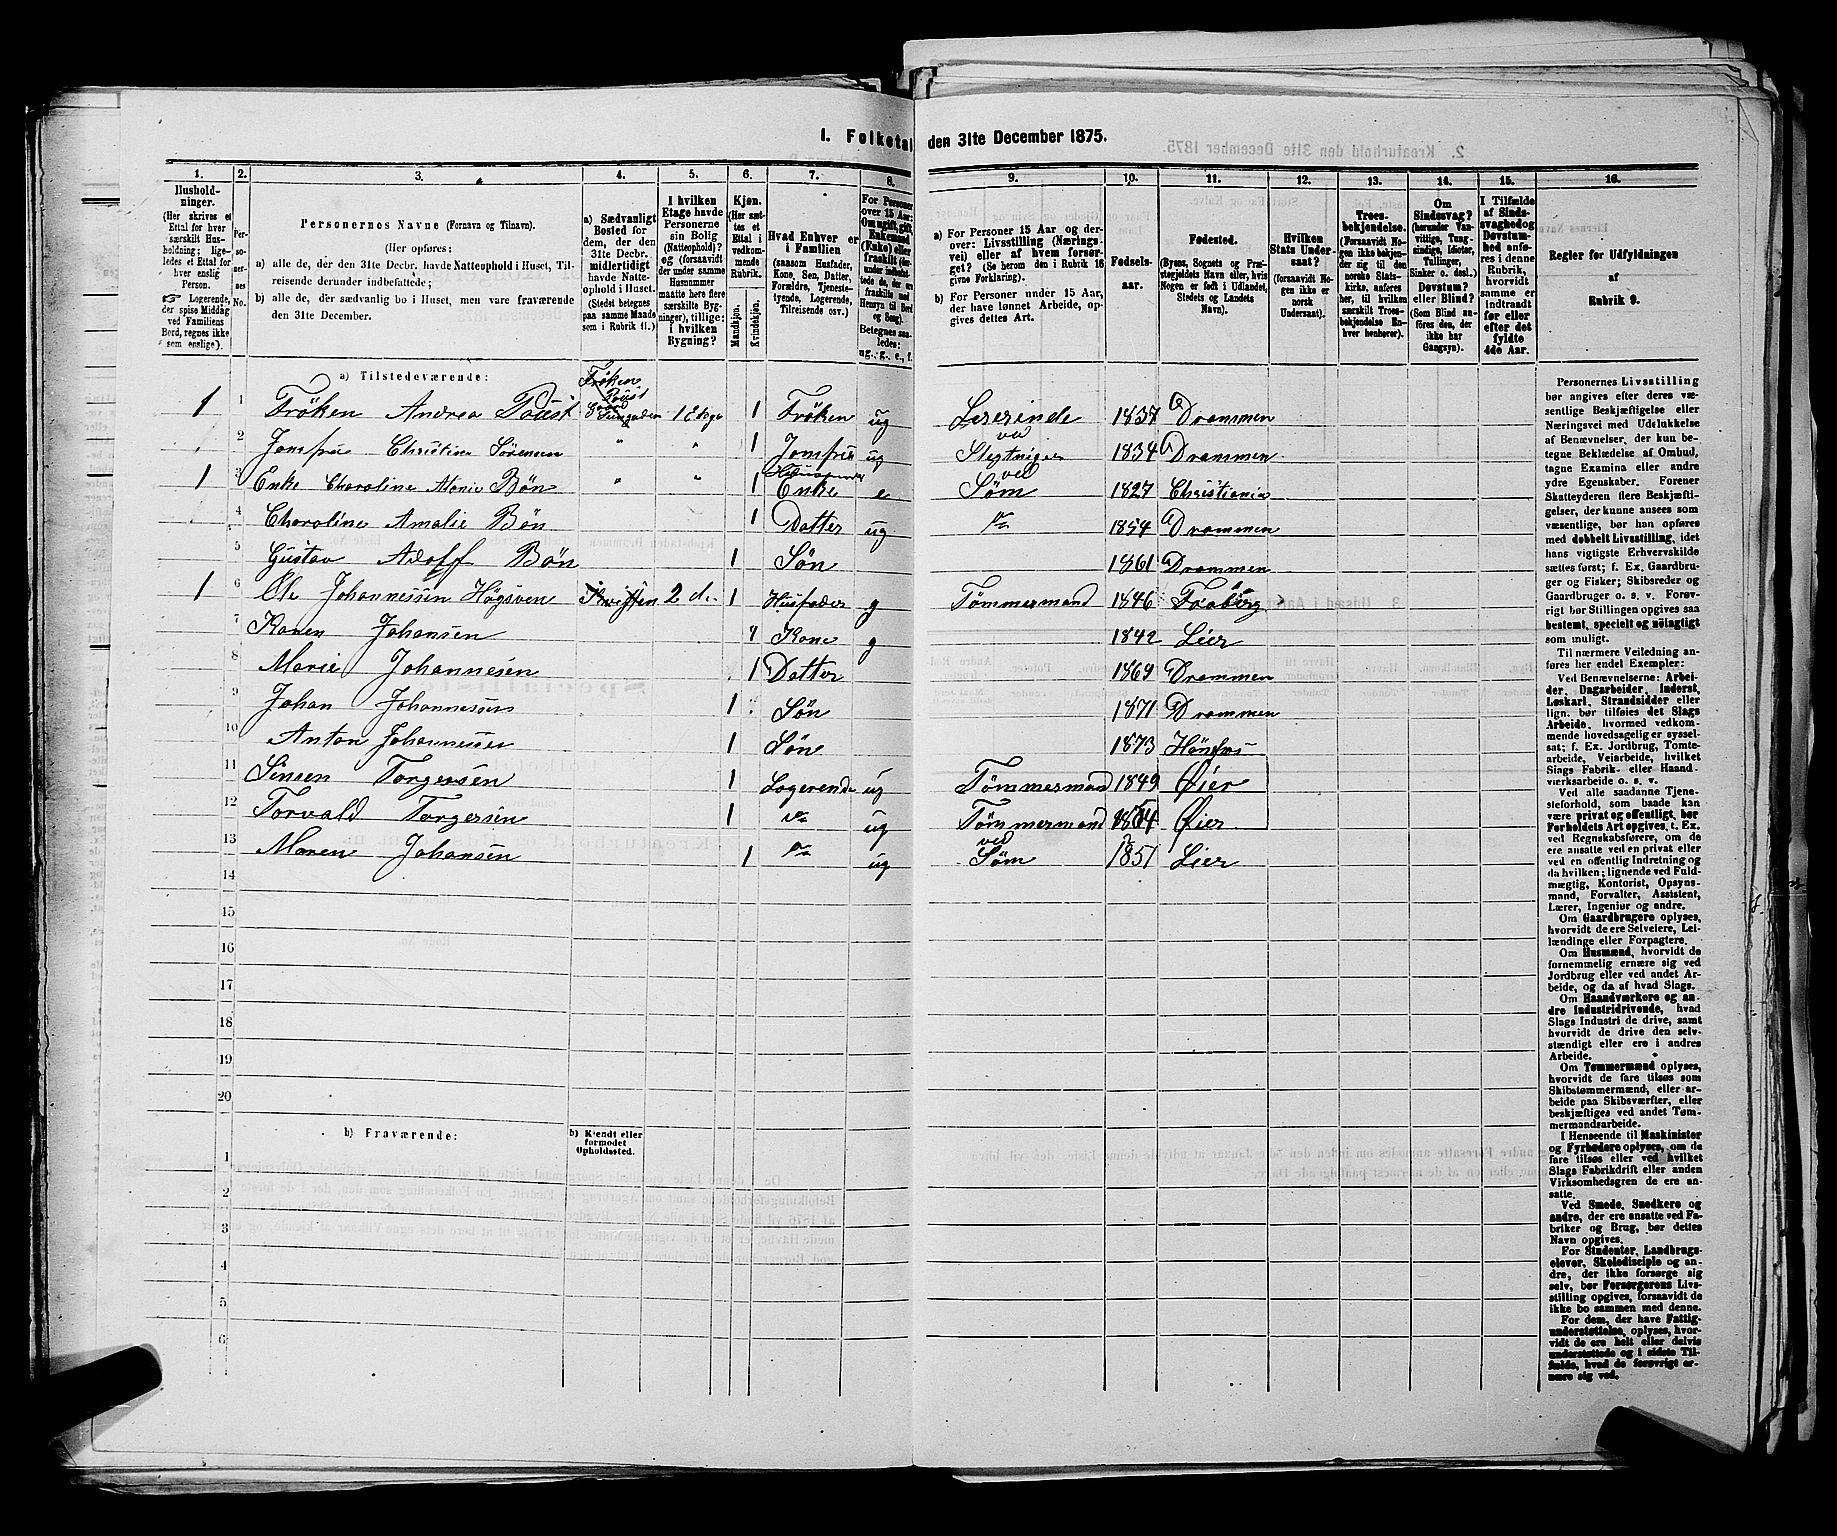 1. Folketal den 31te December 1875.
1. 2. 3. 4. 5. 6. 7. 8. 9. 10. 11. 12. 13. 14. 15. 16.
Husholdninger. (Her skrives et Ettal for hver særskilt Husholdning; ligeledes et Ettal for hver enslig Person. ☞ Logerende, der spise Middag ved Familiens Bord, regnes ikke som enslige).
Personernes No.
Personernes Navne (Fornavn og Tilnavn).
(Her opføres:
a) alle de, der den 31te Decbr. havde Natteophold i Huset, Tilreisende derunder indbefattede;
b) alle de, der sædvanlig bo i Huset, men vare fraværende den 31te December.
a) Sædvanligt Bosted for dem, der den 31te Decbr. midlertidigt havde Natteophold i Huset. (Stedet betegnes paa samme Maade som i Rubrik 11.)
I hvilken Etage havde Personerne sin Bolig (Natteophold)? og (forsaavidt der under samme Husnummer maatte høre flere særskilte Bygninger), tillige: i hvilken Bygning?
Kjøn. (Her sættes et Ettal i vedkommende Rubrik.
Mandskjøn. Kvindekjøn.
Hvad Enhver er i Familien (saasom Husfader, Kone, Søn, Datter, Forældre, Tjenestetyende, Logerende, Tilreisende osv.)
a) For Personer 15 Aar og derover: Livsstilling (Næringsvei) eller af hvem forsørget? (Se herom den i Rubrik 16 givne Forklaring).
b) For Personer under 15 Aar, der have lønnet Arbeide, opgives dettes Art.
Fødselsaar.
Fødested. (Byens, Sognets og Præstegjeldets Navn eller, hvis Nogen er født i Udlandet, Stedets og Landets Navn).
Hvilken Stats Undersaat? (forsaavidt Nogen ikke er norsk Undersaat).
Troesbekjendelse. (Forsaavidt Nogen ikke bekjender sig til den norske Statskirke, anføres her, til hvilken særskilt Troesbekjendelse Enhver henhører).
Om Sindssvag? (herunder Vanvittige, Tungsindige, Idioter, Tullinger, Sinker o. desl.) Døvstum? eller Blind? (Som Blind anføres den, der ikke har Gangsyn).
I Tilfælde af Sindssvaghed og Døvstumhed anføres i denne Rubrik, hvorvidt samme er indtraadt før eller efter det fyldte 4de Aar.
Regler for Udfyldningen af Rubrik 9.
a) Tilstedeværende:
1 1 Frøken Andrea 1 Etage 1 Frøken ug Leserinde 1837 Drammen
2 Jomfru Christine Sørensen " " 1 Jomfru ug 1834 Drammen
1 3 Enke Charoline Marie Bøn " " 1 Enke e ved Søm 1827 Christiania
4 Charoline Amalie Bøn 1 Datter ug 1854 Drammen
5 Gustav Adolf Bøn 1 Søn 1861 Drammen
1 6 Ole Johannessen 2 d. 1 Husfader g Tømmermand 1846 Faaberg
7 Karen Johansen 1 Kone g 1842 Lier
8 Marie Johannesen 1 Datter 1869 Drammen
9 Johan Johannesen 1 Søn 1871 Drammen
10 Anton Johannessen 1 Søn 1873 Hønefos
11 Simen Torgersen 1 Logerende ug Tømmermand 1849 Øier
12 Torvald Torgersen 1 ug Tømmermand Øier
13 Maren Johansen 1 ug ved Søm 1851 Lier
14
15
16
17
18
19
20
b) Fraværende: b) Kjendt eller formodet Opholdssted.
1
2
3
4
5
6
Personernes Livsstilling
bør angives efter deres væ-
sentlige Beskjæftigelse eller
Næringsvei med Udelukkelse
af Benævnelser, der kun be-
tegne Beklædelse af Ombud,
tagne Examina eller andre
ydre Egenskaber. Forener
Skatteyderen flere Beskjæfti-
gelser, der kunne ansees som
væsentlige, bør han opføres
med dobbelt Livsstilling, idet
hans vigtigste Erhvervskilde
sættes først; f. Ex. Gaardbru-
ger og Fisker; Skibsreder og
Gaardbruger o. s. v. Forøv-
rigt bør Stillingen opgives saa
bestemt, specielt og nöiagtigt
som muligt.
Til nærmere Veiledning an-
føres her endel Exempler:
Ved Benævnelserne: Arbei-
der, Dagarbeider, Inderst,
Løskarl, Strandsidder eller
lign. bør tilføies det Slags
Arbeide, hvormed vedkom-
mende hovedsagelig er syssel-
sat; f. Ex. Jordbrug, Tomte-
arbeide, Veiarbeide, hvilket
Slags Fabrik- eller Haand-
værksarbeide o. s. v.
Ved alle saadanne Tjene-
steforhold, som baade kan
være privat og offentligt, bør
Forholdets Art opgives, t. Ex.
ved Regnskabsførere, om de
ere ansatte ved en privat eller
ved en offentlig Indretning og
da hvilken; lignende ved Fuld-
mægtig, Kontorist, Opsyns-
mand, Forvalter, Assistent,
Lærer, Ingeniør og andre.
Om Gaardbrugere oplyses,
hvorvidt de ere Selveiere, Lei-
lændinge eller Forpagtere.
Om Husmænd, hvorvidt de
fornemmelig ernære sig ved
Jordbrug eller ved andet Ar-
beide, og da af hvad Slags.
Om Haandværkere og an-
dre Industridrivende, hvad
Slags Industri de drive, samt
hvorvidt de drive den selv-
stændigt eller ere i andres
Arbeide.
Om Tømmermænd oplyses,
hvorvidt de fare tilsøs som
Skibstømmermænd, eller ar-
beide paa Skibsværfter, eller
beskjæftiges ved andet Tøm-
mermandsarbeide.
I Henseende til Maskinister
og Fyrbødere oplyses, om de
fare tilsøs eller ved hvilket
Slags Fabrikdrift eller anden
Virksomhedsgren de ere an-
satte.
Ved Smede, Snedkere og
andre, der ere ansatte ved Fa-
briker og Brug, bør dettes
Navn opgives.
For Studenter, Landbrugs-
elever, Skoledisciple og an-
dre, der ikke forsørge sig
selv, bør Forsørgerens Livs-
stilling opgives, forsaavidt de
ikke bo sammen med denne.
For dem, der have Fattig-
understøttelse, oplyses, hvor-
vidt de ere helt eller delvis
understøttede og i sidste Til-
fælde, hvad de forøvrigt er-
nære sig ved.